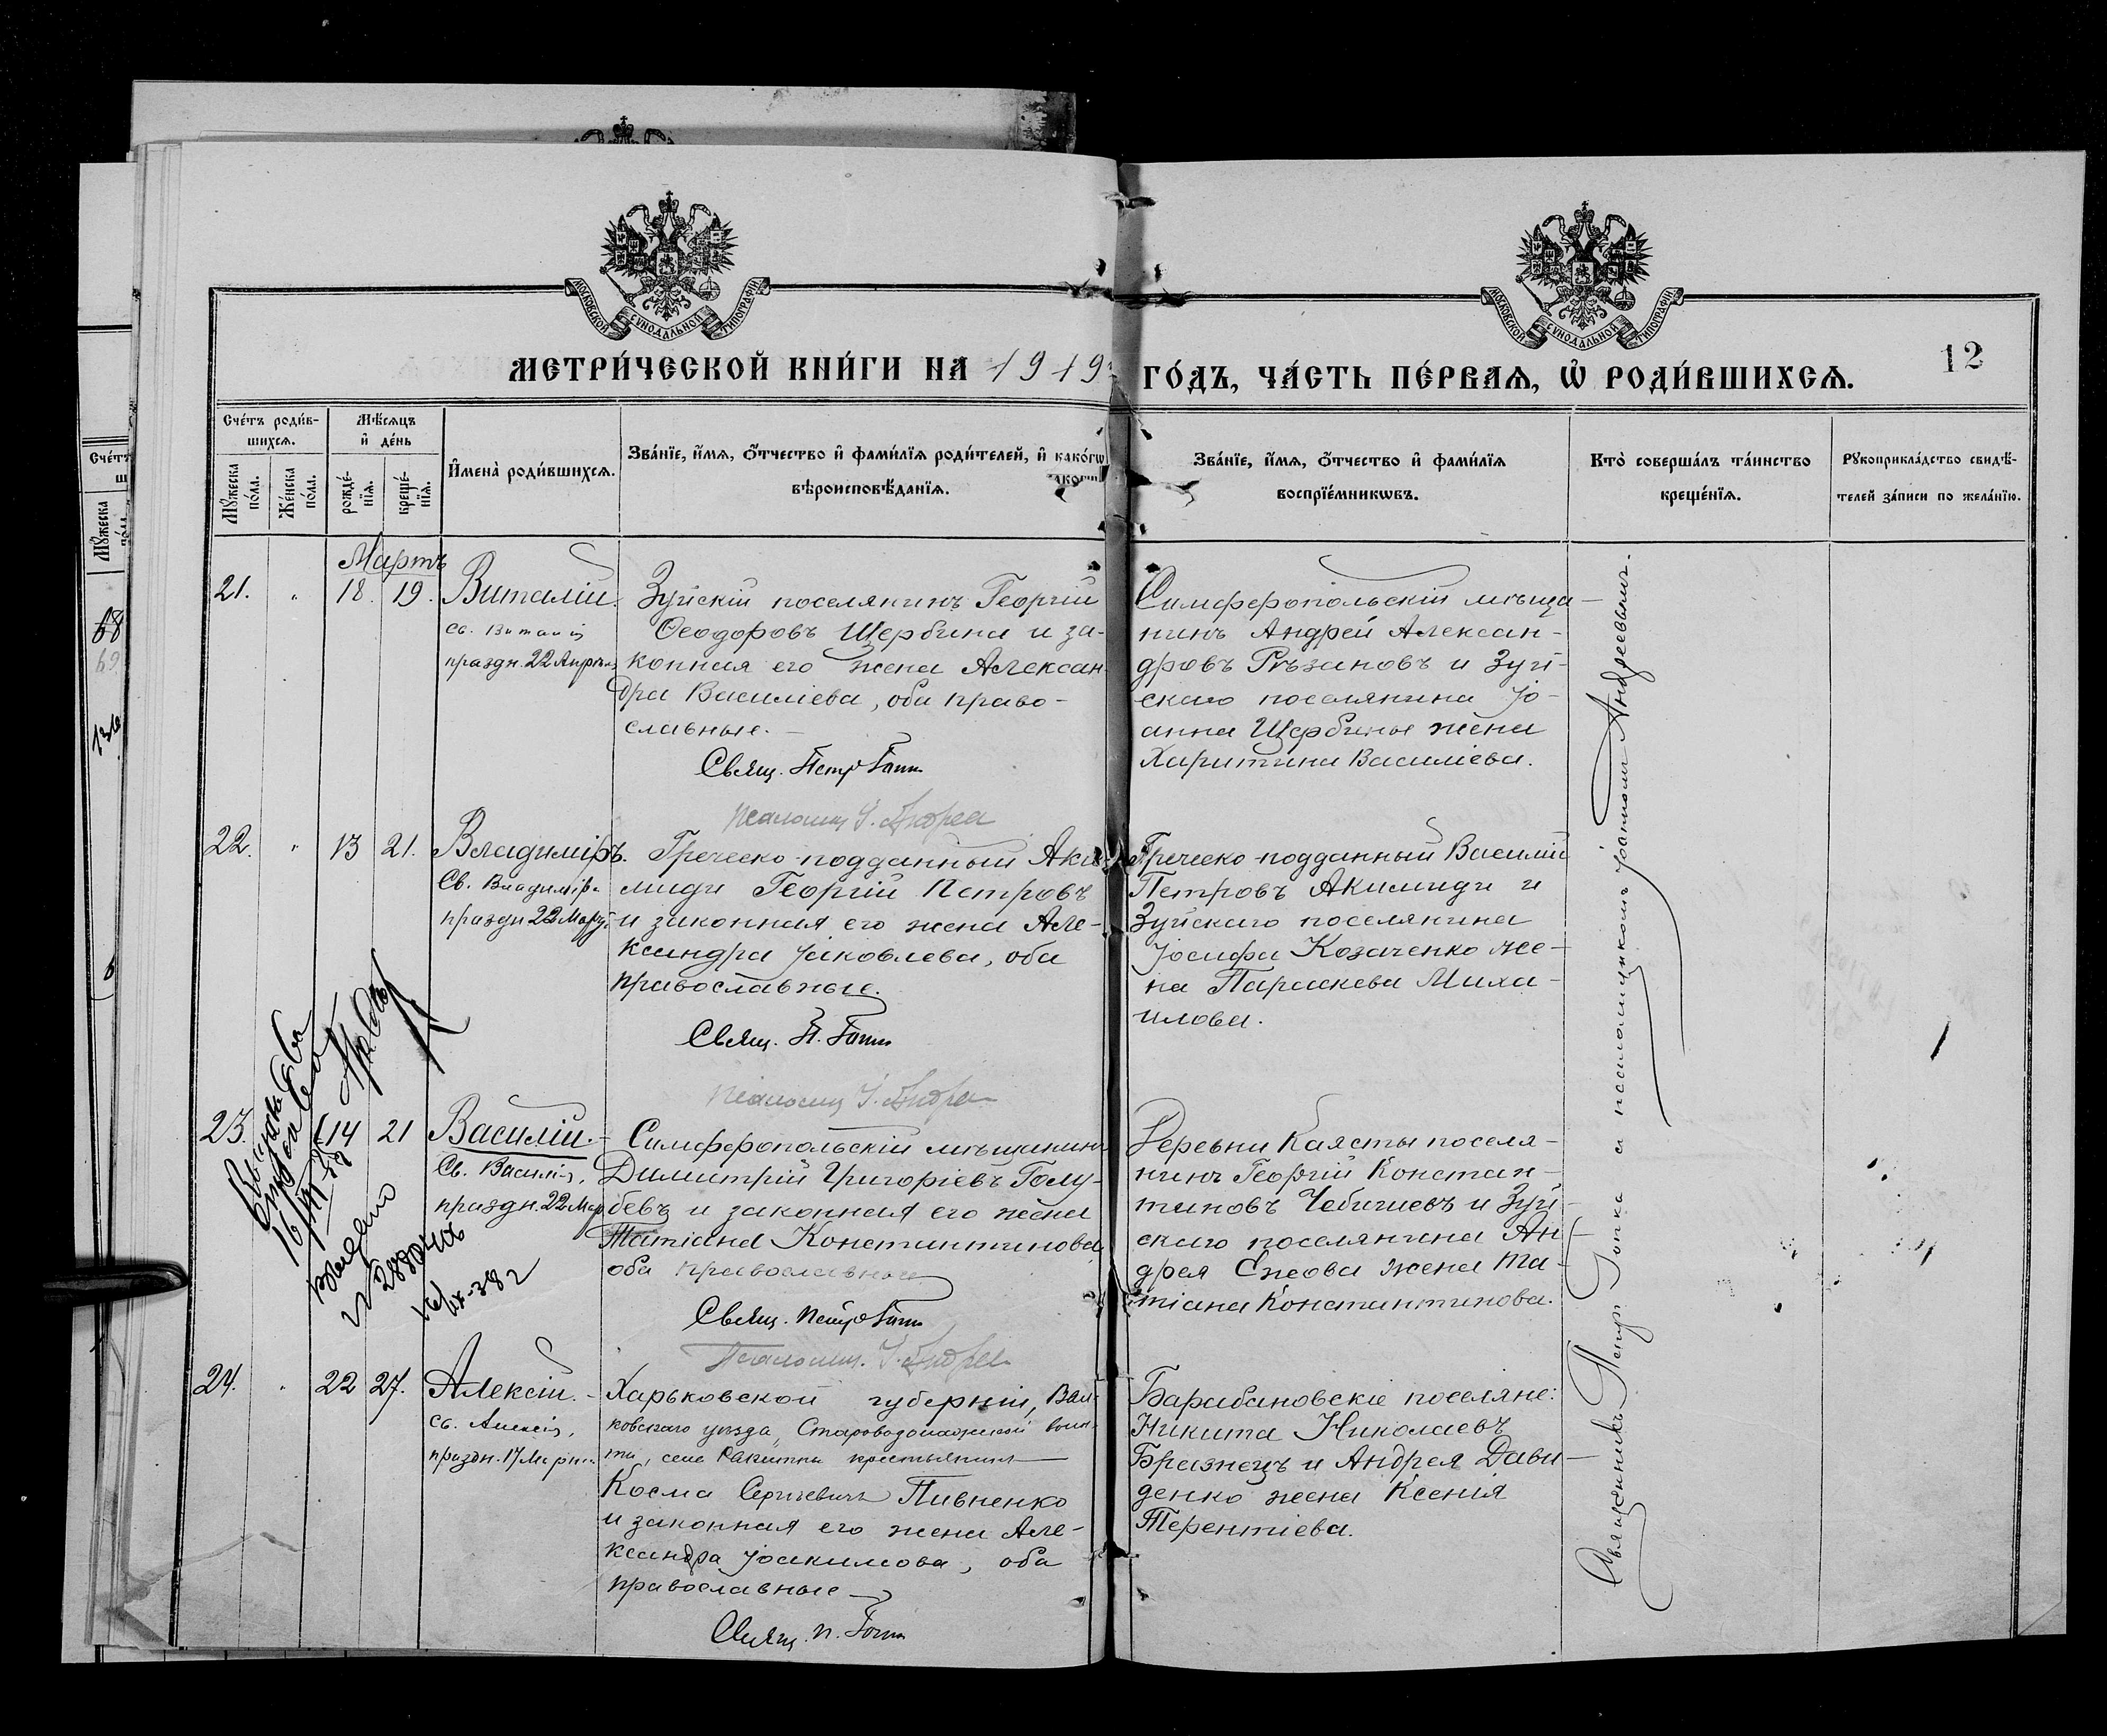 МОСКОВСКОЙ СѴНОДАЛЬНОЙ ТИПОГРАФІИ
МОСКОВСКОЙ СѴНОДАЛЬНОЙ ТИПОГРАФІИ
МЕТРИ́ЧЕСКОЙ КНИ́ГИ НА 1919 ГО́ДЪ, ЧА́СТЬ ПЕ́РВАѦ, Ѡ҆ РОДИ́ВШИХСѦ.
12
Сче́тъ роди́в-
шихсѧ.
Мꙋ́жеска по́ла.
Же́нска по́ла.
Мѣ́сѧцъ
и҆ де́нь
рожде́-
нїѧ.
креще́-
нїѧ.
И҆мена̀ роди́вшихсѧ.
Зва́нїе, и҆́мѧ, ѻ҆́тчество и҆ фами́лїѧ роди́телей, и҆ како́гѡ
вѣроисповѣ́данїѧ.
Зва́нїе, и҆́мѧ, ѻ҆́тчество и҆ фами́лїѧ
воспрїе́мникѡвъ.
Кто̀ соверша́лъ та́инство
креще́нїѧ.
Рꙋкоприкла́дство свидѣ́-
телей за́писи по жела́нїю.
Мартъ
21. " 18. 19. Виталій.
Св. Виталія
праздн. 22 Апрѣля
Зуйскій поселянинъ Георгій
Ѳеодоровъ Щербина и за-
конная его жена Алексан-
дра Василіева, оба право-
славные.
Свящ. Петр
Псаломщ. І. Андрее
Симферопольскій мѣща-
нинъ Андрей Алексан-
дровъ Рѣзановъ и Зуй-
скаго поселянина Іо-
анна Щербины жена
Харитина Василіева.
22. " 13 21. Владиміръ.
Св. Владиміра
праздн 22 Мар
Греческо-подданный Аки-
лиди Георгій Петровъ
и законная его жена Але-
ксандра Іаковлева, оба
православные.
Свящ. П.
Псаломщ І. Андре
Греческо-подданный Василій
Петровъ Акилиди и
Зуйскаго поселянина
Іосифа Козаченко же-
на Параскева Миха-
илова.
23. 14 21 Василій.
Св. Василія,
праздн. 22 Мар
Симферопольскій мѣщанинъ
Димитрій Григоріевъ Голу-
бевъ и законная его жена
Татіана Константинова
оба православные
Свящ. Петр
Псаломщ. І. Андрее
Деревни Каясты поселя-
нинъ Георгій Констан-
тиновъ Чебичиевъ и Зуй-
скаго поселянина Ан-
дрея Ежова жена Та-
тіана Константинова.
выдано
16/IX-38 г
24. " 22 27. Алексій.
св. Алексія,
праздн. 17 Марта
Харьковской губерніи, Вал-
ковскаго уѣзда, Староводолажской волос-
ти, села Ракитна крестьянинъ
Косма Сергіевичъ Пивненко
и законная его жена Але-
ксандра Іоакимова, оба
православные
Свящ. П.
Барабановскіе поселяне:
Никита Николаевъ
Бражнецъ и Андрея Дави-
денко жена Ксенія
Терентіева.
Священникъ Петр а псаломщикомъ Іоанномъ Андреевымъ.